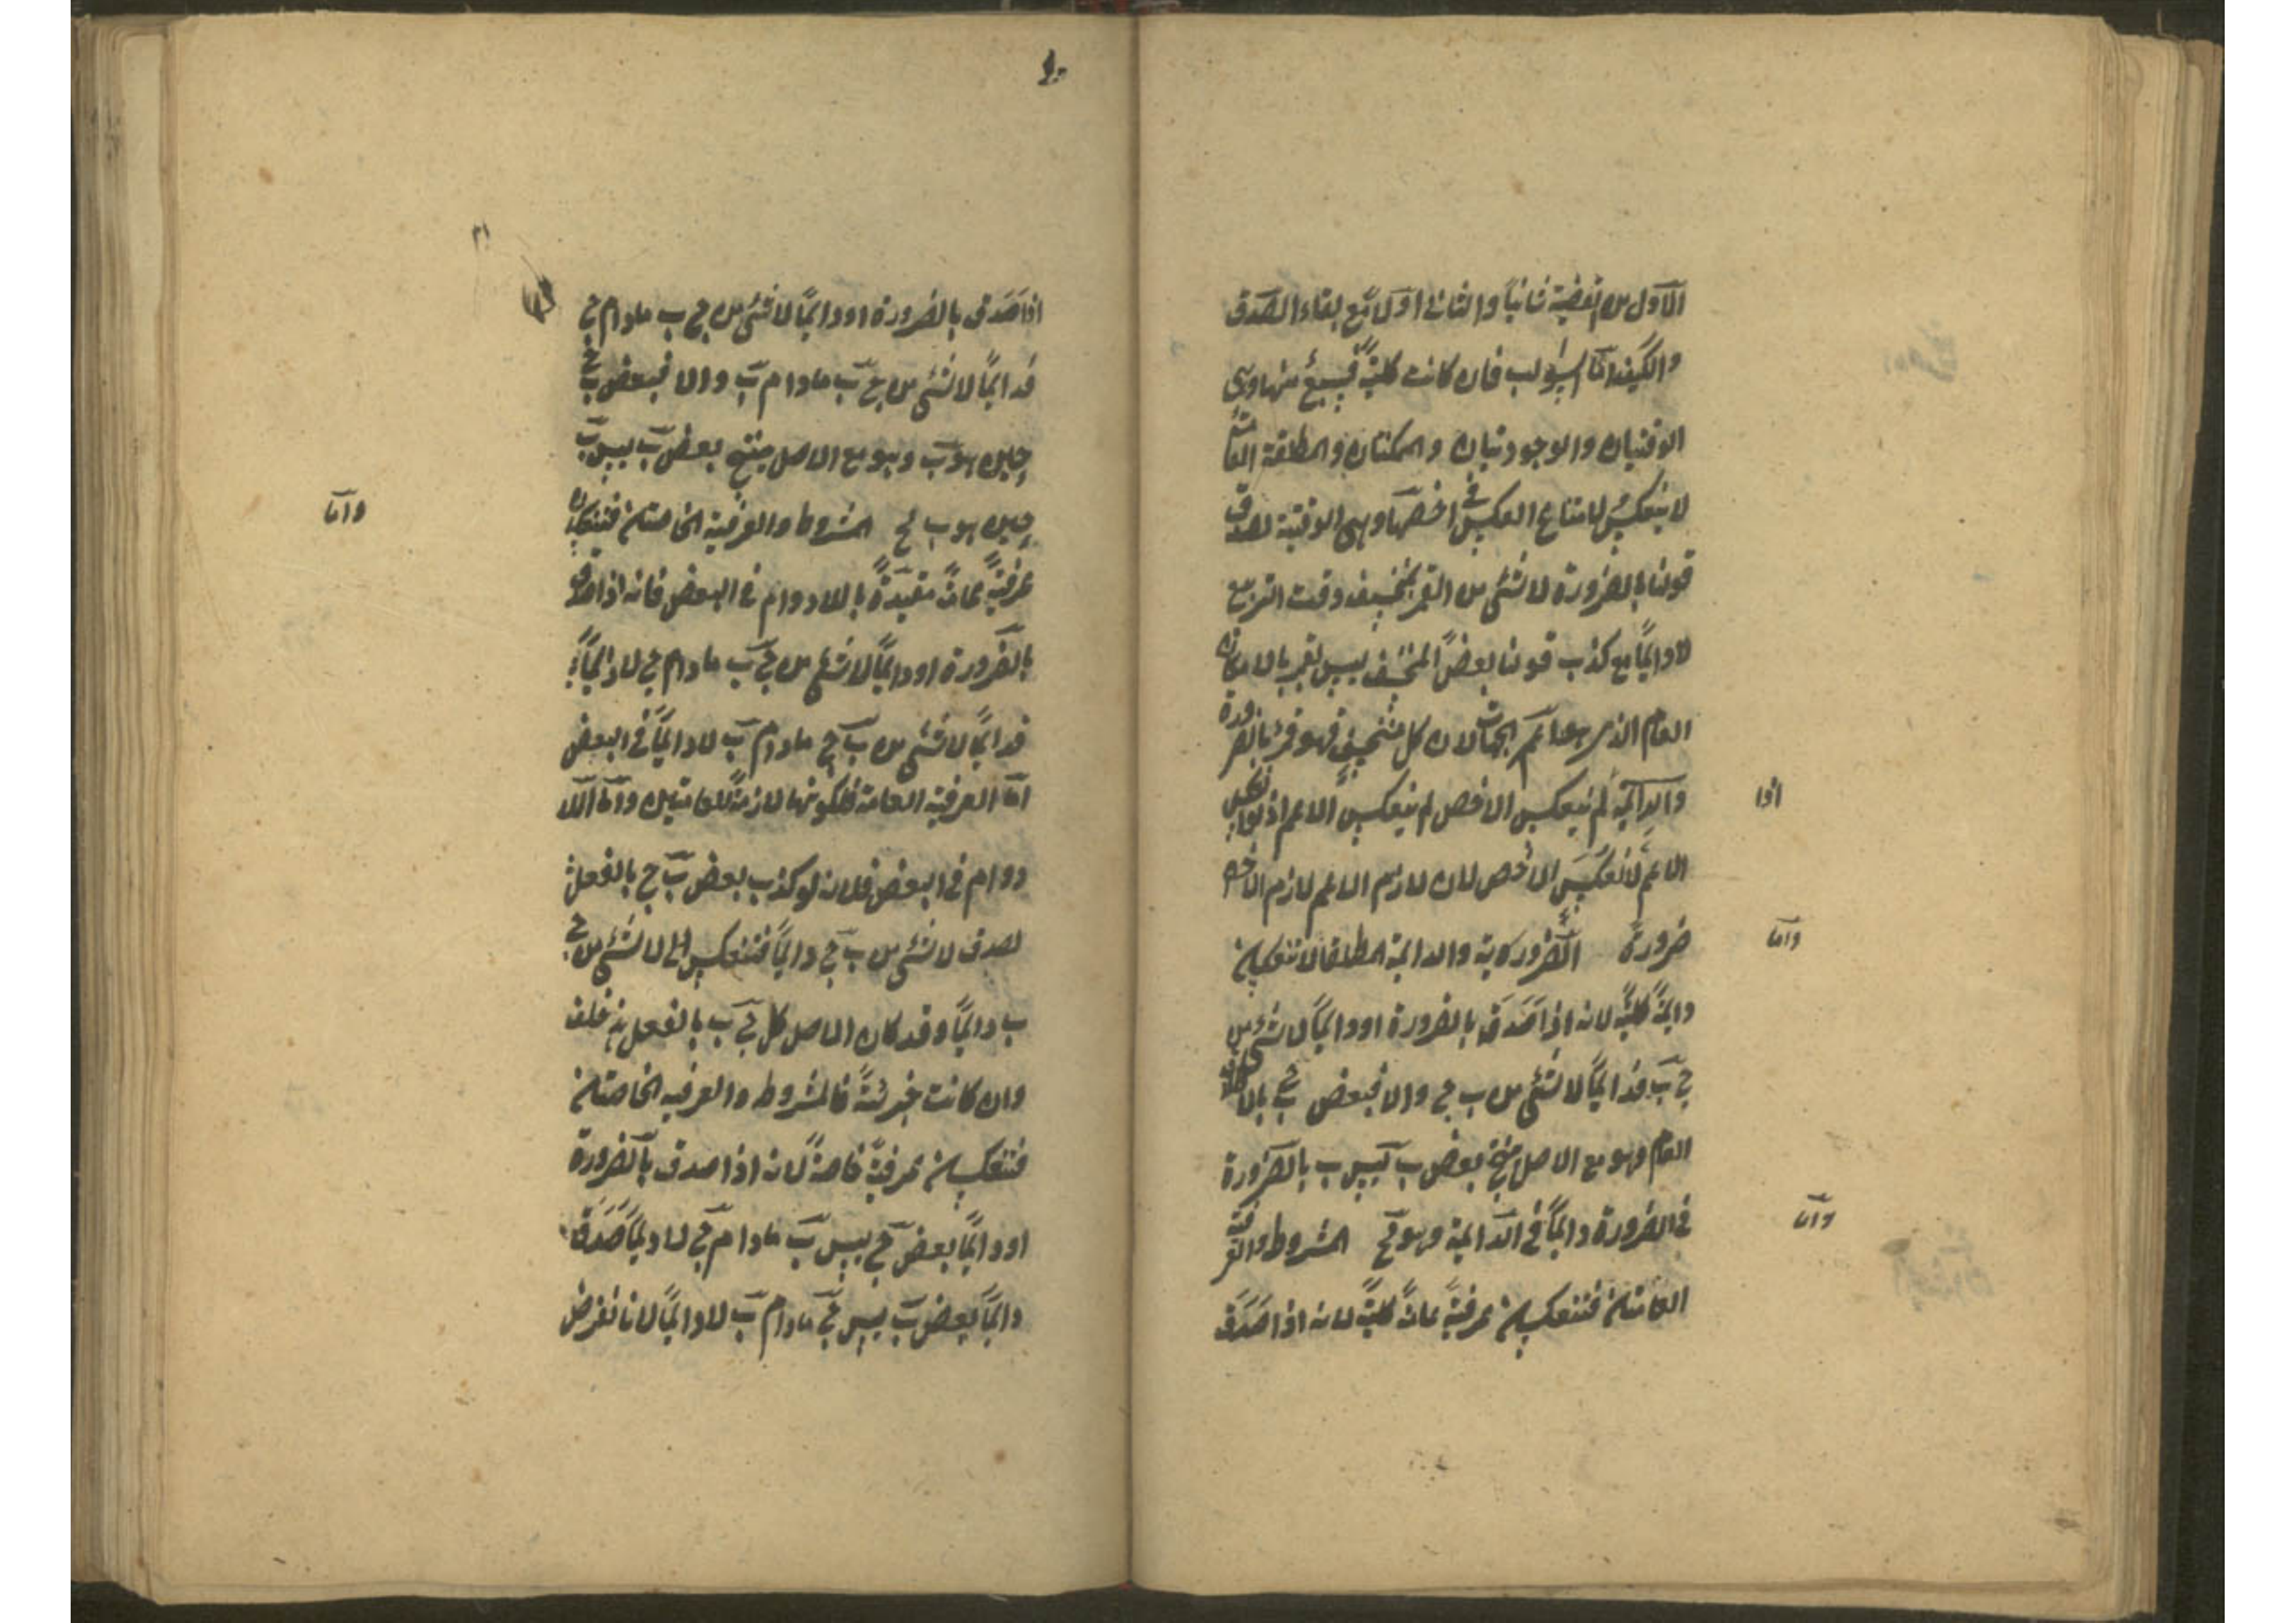 الاول من القضية ثانياً والثانى اوّلاً مع بقاء الصدق
والكيف اما السوالب فان كانت كلية فسبع منها وهى
الوقتيان والوجوديتان والممكنتان والمطلقة العامة
لا ينعكس لامتناع العكس فى اخصها وهى الوقتية لصدق
قولنا بالضرورة لا شئ من القمر بمنخسف وقت التربيع
لا دايماً مع كذب قولنا بعض المنخسف ليس بقمر بالامكان
العام الذى هو اعم الجهات لان كل منخسف فهو قمر بالضرورة
اذا
لم ينعكس الاخص لم ينعكس الاعم اذ لو انعكس
الاعم لانعكس الاخص لان لازم الاعم لازم الاخص
ضرورة الضرورية والدايمة المطلقة لا تنعكسان
وامّا
دايمة كلية لانه اذا صدق بالضرورة او دايماً لا شئ من
ج ب فدايماً لا شئ من ب ج والا فبعض ب ج بالاطلاق
العام وهو مع الاصل ينتج بعض ب ليس ب بالضرورة
فى الضرورة دايماً فى الدايمة وهو مح المشروطة والعرفية
وامّا
العامتان فتنعكسان عرفية عامة كلية لانه اذا صدق
١٠
اذا صدق بالضرورة او دايماً لا شئ من ج ب مادام ج
فدايماً لا شئ من ج ب مادام ب والا فبعض ب ج
حين هو ب وهو مع الاصل ينتج بعض ب ليس ب
حين هو ب مح المشروطة والعرفية الخاصتان فتنعكسان
وامّا
عرفية عامة مقيدة باللادوام فى البعض فانه اذا صدق
بالضرورة او دايماً لا شئ من ج ب مادام ج لا دايماً
فدايماً لا شئ من ب ج مادام ب لا دايماً فى البعض
اما العرفية العامة فلكونها لازمة للعامتين واما اللا
دوام فى البعض فلانه لو كذب بعض ب ج بالفعل
لصدق لا شئ من ب ج دايماً فتنعكس الى لا شئ من ج
ب دايماً وقد كان الاصل كل ج ب بالفعل هذا خلف
وان كانت جزئية فالمشروطة والعرفية الخاصتان
فتنعكسان عرفية خاصة لانه اذا صدق بالضرورة
او دايماً بعض ج ليس ب مادام ج لا دايماً صدق
دايماً بعض ب ليس ج مادام ب لا دايماً لانا نفرض